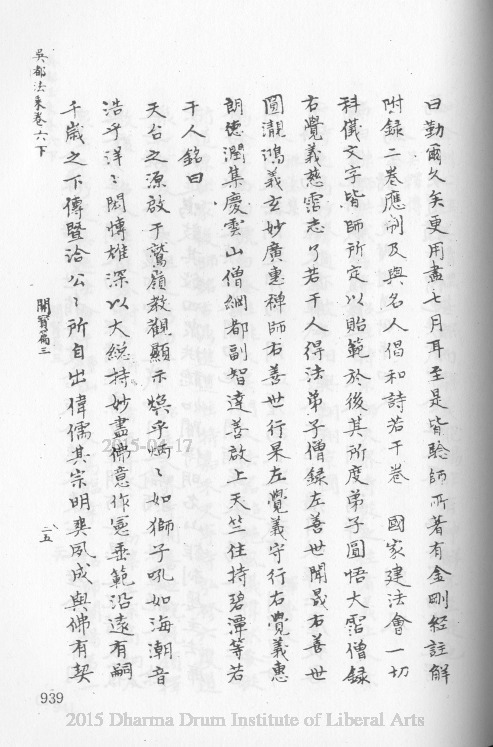 曰勤爾久矣更用盡七月耳至是皆驗師所著有金剛經註解
附録二卷應制及與名人倡和詩若干卷　國家建法會一切
科儀文字皆師所定以貽範於後其所度弟子圓悟大霑僧録
右覺義慈霑志了若干人得法弟子僧録左善世聞晟右善世
圓瀞鴻義玄妙廣惠禅師右善世行杲左覺義守行右覺義惠
朗德潤集慶雲山僧綱都副智達善啟上天竺住持碧潭等若
干人銘曰
天台之源啟于鷲嶺教觀顯示煥乎炳〻如獅子吼如海潮音
浩乎洋〻閎博雄深以大総持妙盡佛意作憲垂範沿遠有嗣
千歲之下傳賢洽公〻所自出偉儒其宗明奭夙成與佛有契
吳都法乗卷六下
開寳篇三
二五
939
2015-04-17
2015 Dharma Drum Institute of Liberal Arts